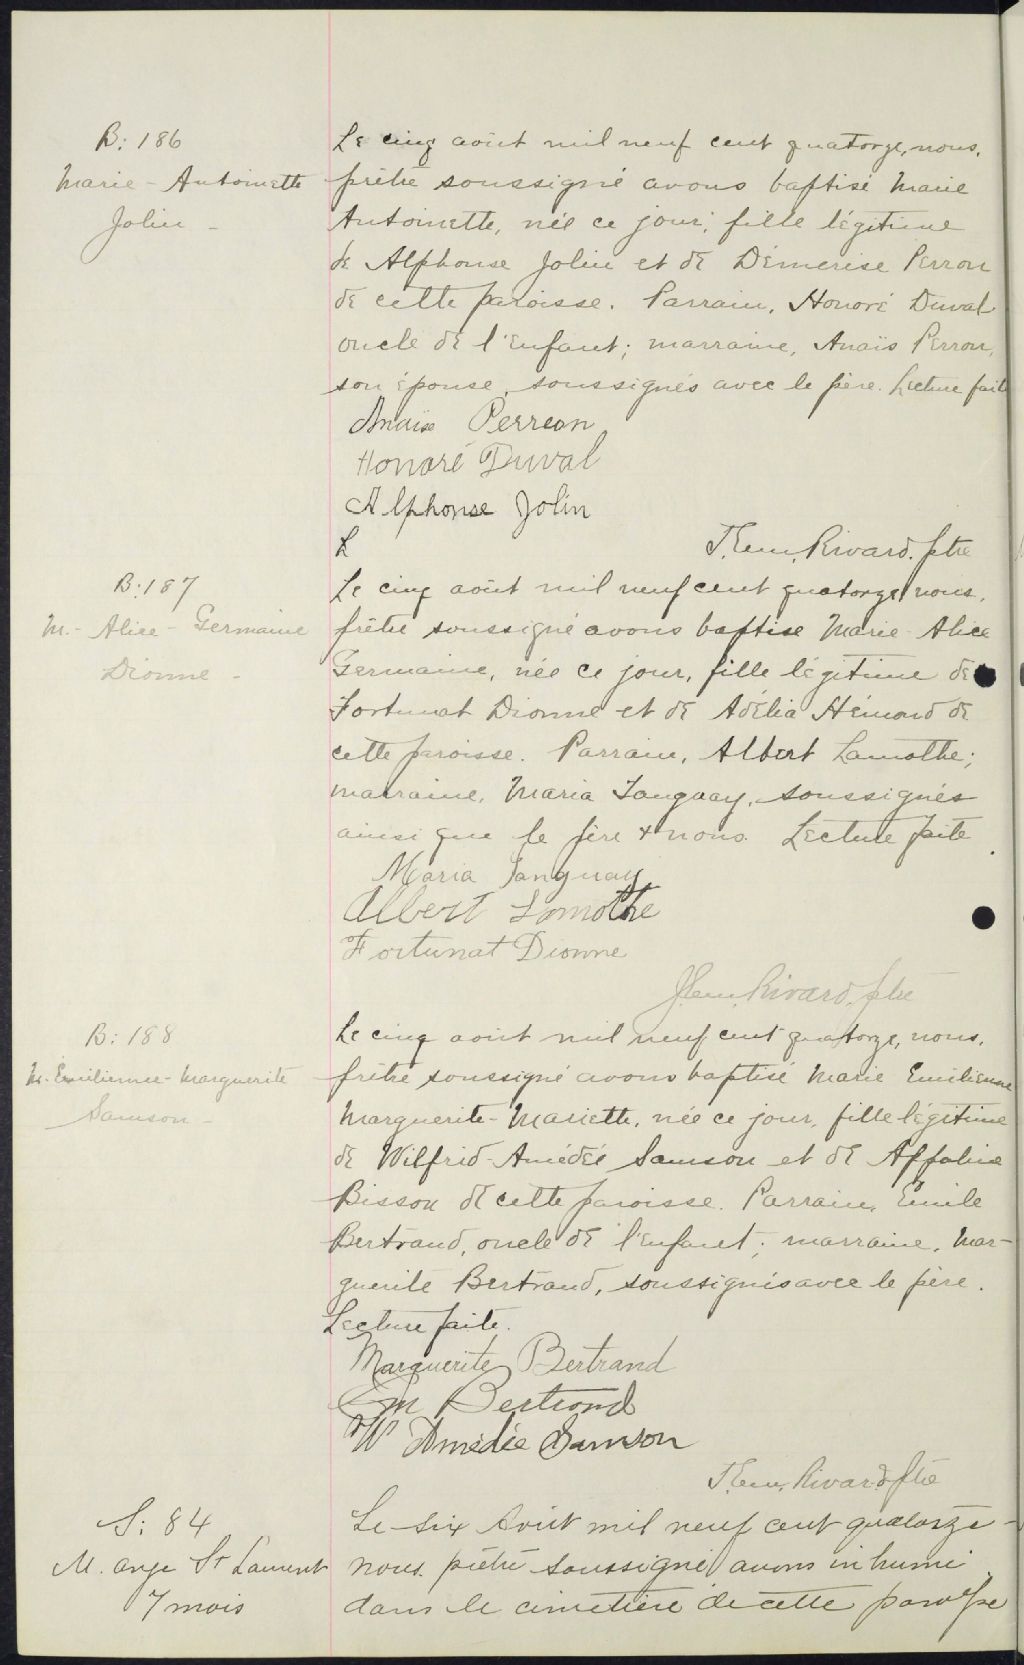 B: 186
Marie-Antoinette
Jolin -
Le cinq août mil neuf cent quatorze, nous,
prêtre soussigné avons baptisé Marie
Antoinette, née ce jour, fille légitime
de Alphonse Jolin et de Démerise Perron
de cette paroisse. Parrain, Honoré Duval
oncle de l'enfant; marraine, Anaïs Perron,
son épouse, soussignés avec le père. Lecture faite
Anaïs Perreon
Honoré Duval
Alphonse Jolin
L
Rivard, ptre
B: 187
M.- Alice - Germaine
Dionne -
Le cinq août mil neuf cent quatorze, nous,
prêtre soussigné avons baptisé Marie-Alice
Germaine, née ce jour, fille légitime de
Fortunat Dionne et de Adélia Hémond de
cette paroisse. Parrain, Albert Lamothe;
marraine, Maria Tanguay, soussignés
ainsi que le père & nous. Lecture faite.
Maria Tanguay
Albert Lamothe
Fortunat Dionne
Rivard, ptre
B: 188
M.-Emilienne-Marguerite
Samson -
Le cinq août mil neuf cent quatorze, nous,
prêtre soussigné avons baptisé Marie Emilienne
Marguerite-Mariette, née ce jour, fille légitime
de Wilfrid-Amédée Samson et de Appoline
Bisson de cette paroisse. Parrain, Emile
Bertrand, oncle de l'enfant; marraine, Mar-
guerite Bertrand, soussignés avec le père.
Lecture faite.
Marguerite Bertrand
Em Bertrand
W Amédée Samson
Rivard ptre
S: 84
M. ange St Laurent
7 mois
Le six Août mil neuf cent quatorze -
nous prêtre soussigné avons inhumé
dans le cimetière de cette paroisse